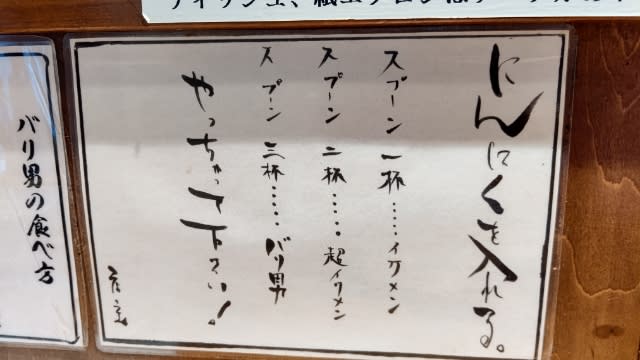 にんにくを入れる。
スプーン 一杯……イケメン
スプーン 二杯……超イケメン
スプーン 三杯……バリ男
やっちゃって下さい!
店主
バリ男の食べ方